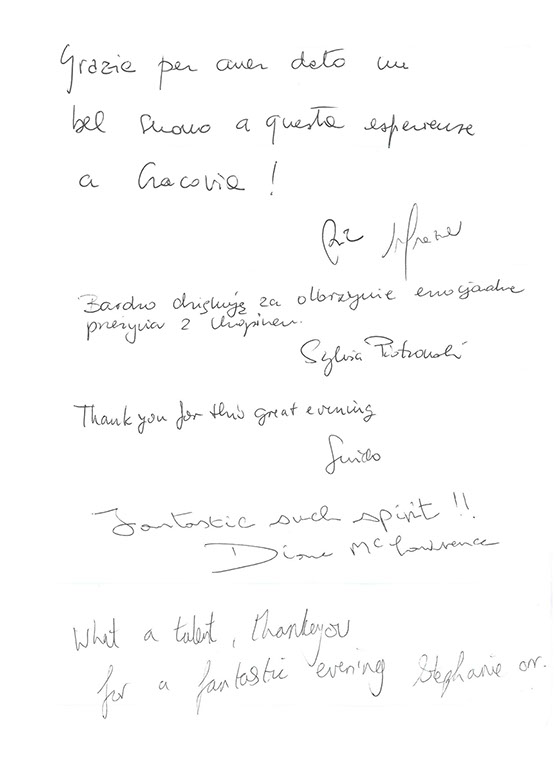 Grazie per aver dato un
bel suono a questa esperienza
a Cracovia!
Bardzo dziękuję za olbrzymie emocjonalne
przeżycia z Chopinem.
Sylwia Piotrowski
Thank you for this great evening
Guido
Fantastic such spirit!!
Diane McLawrence
What a talent, thankyou
for a fantastic evening Stephanie orr.